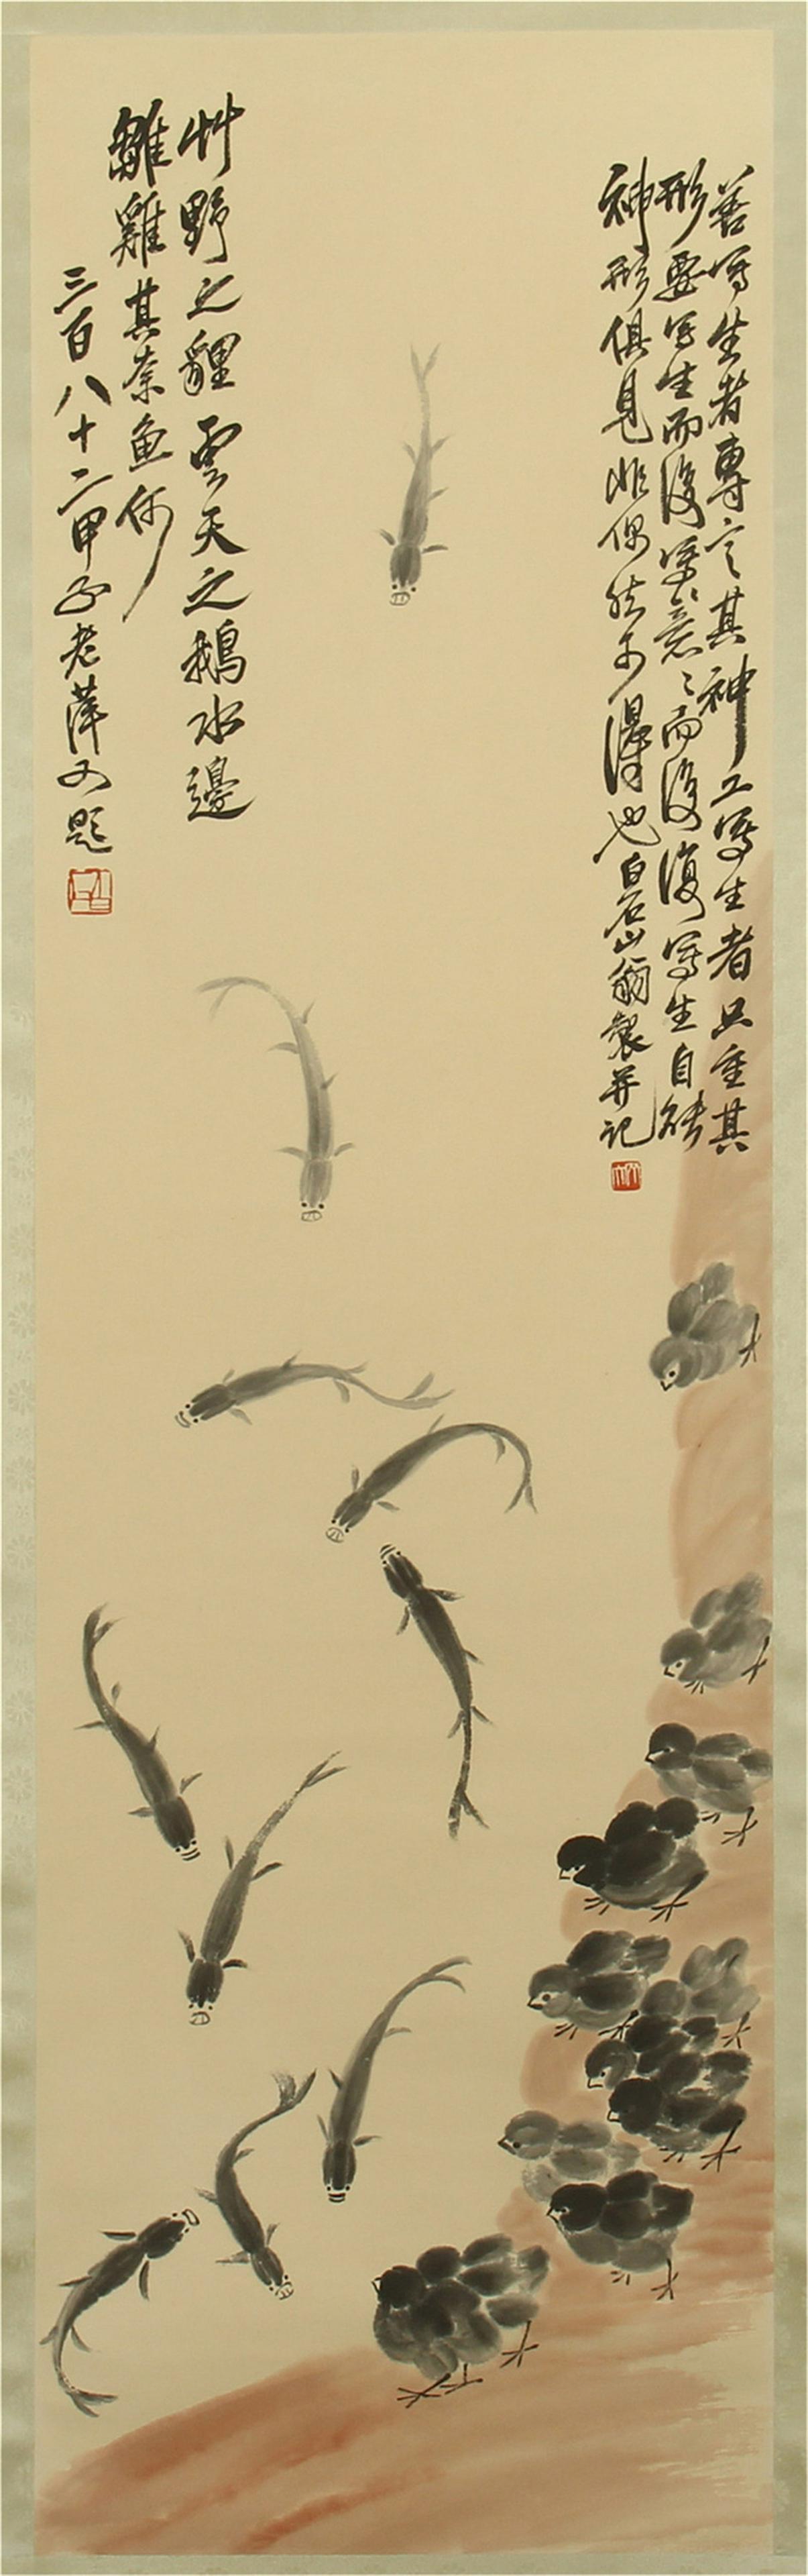 善寫生者專言其神工寫生者只重其
形要寫生而後寫意〻而後復寫生自能
神形俱見非偶然可得也白石山翁製并記
艸野之貍雲天之鵝水邊
雛雞其奈魚何
三百八十二甲子老萍又題